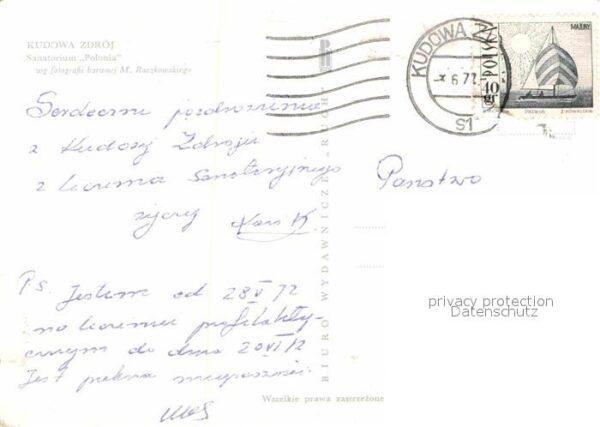 KUDOWA ZDRÓJ
Sanatorium „Polonia"
wg fotografii barwnej M. Raczkowskiego
Serdeczne pozdrowienia
z Kudowy Zdroju
z leczenia Sanatoryjnego
życzy
K.
Państwo
Ps. Jestem od 28 V 72
na leczeniu profilakty-
cznym do dnia 20 VI 72
Jest piękna miejscowość.
BIURO WYDAWNICZE „RUCH"
Wszelkie prawa zastrzeżone
KUDOWA Z
6.72
s1
MAZURY
POLSKA
40
GR
privacy protection
Datenschutz